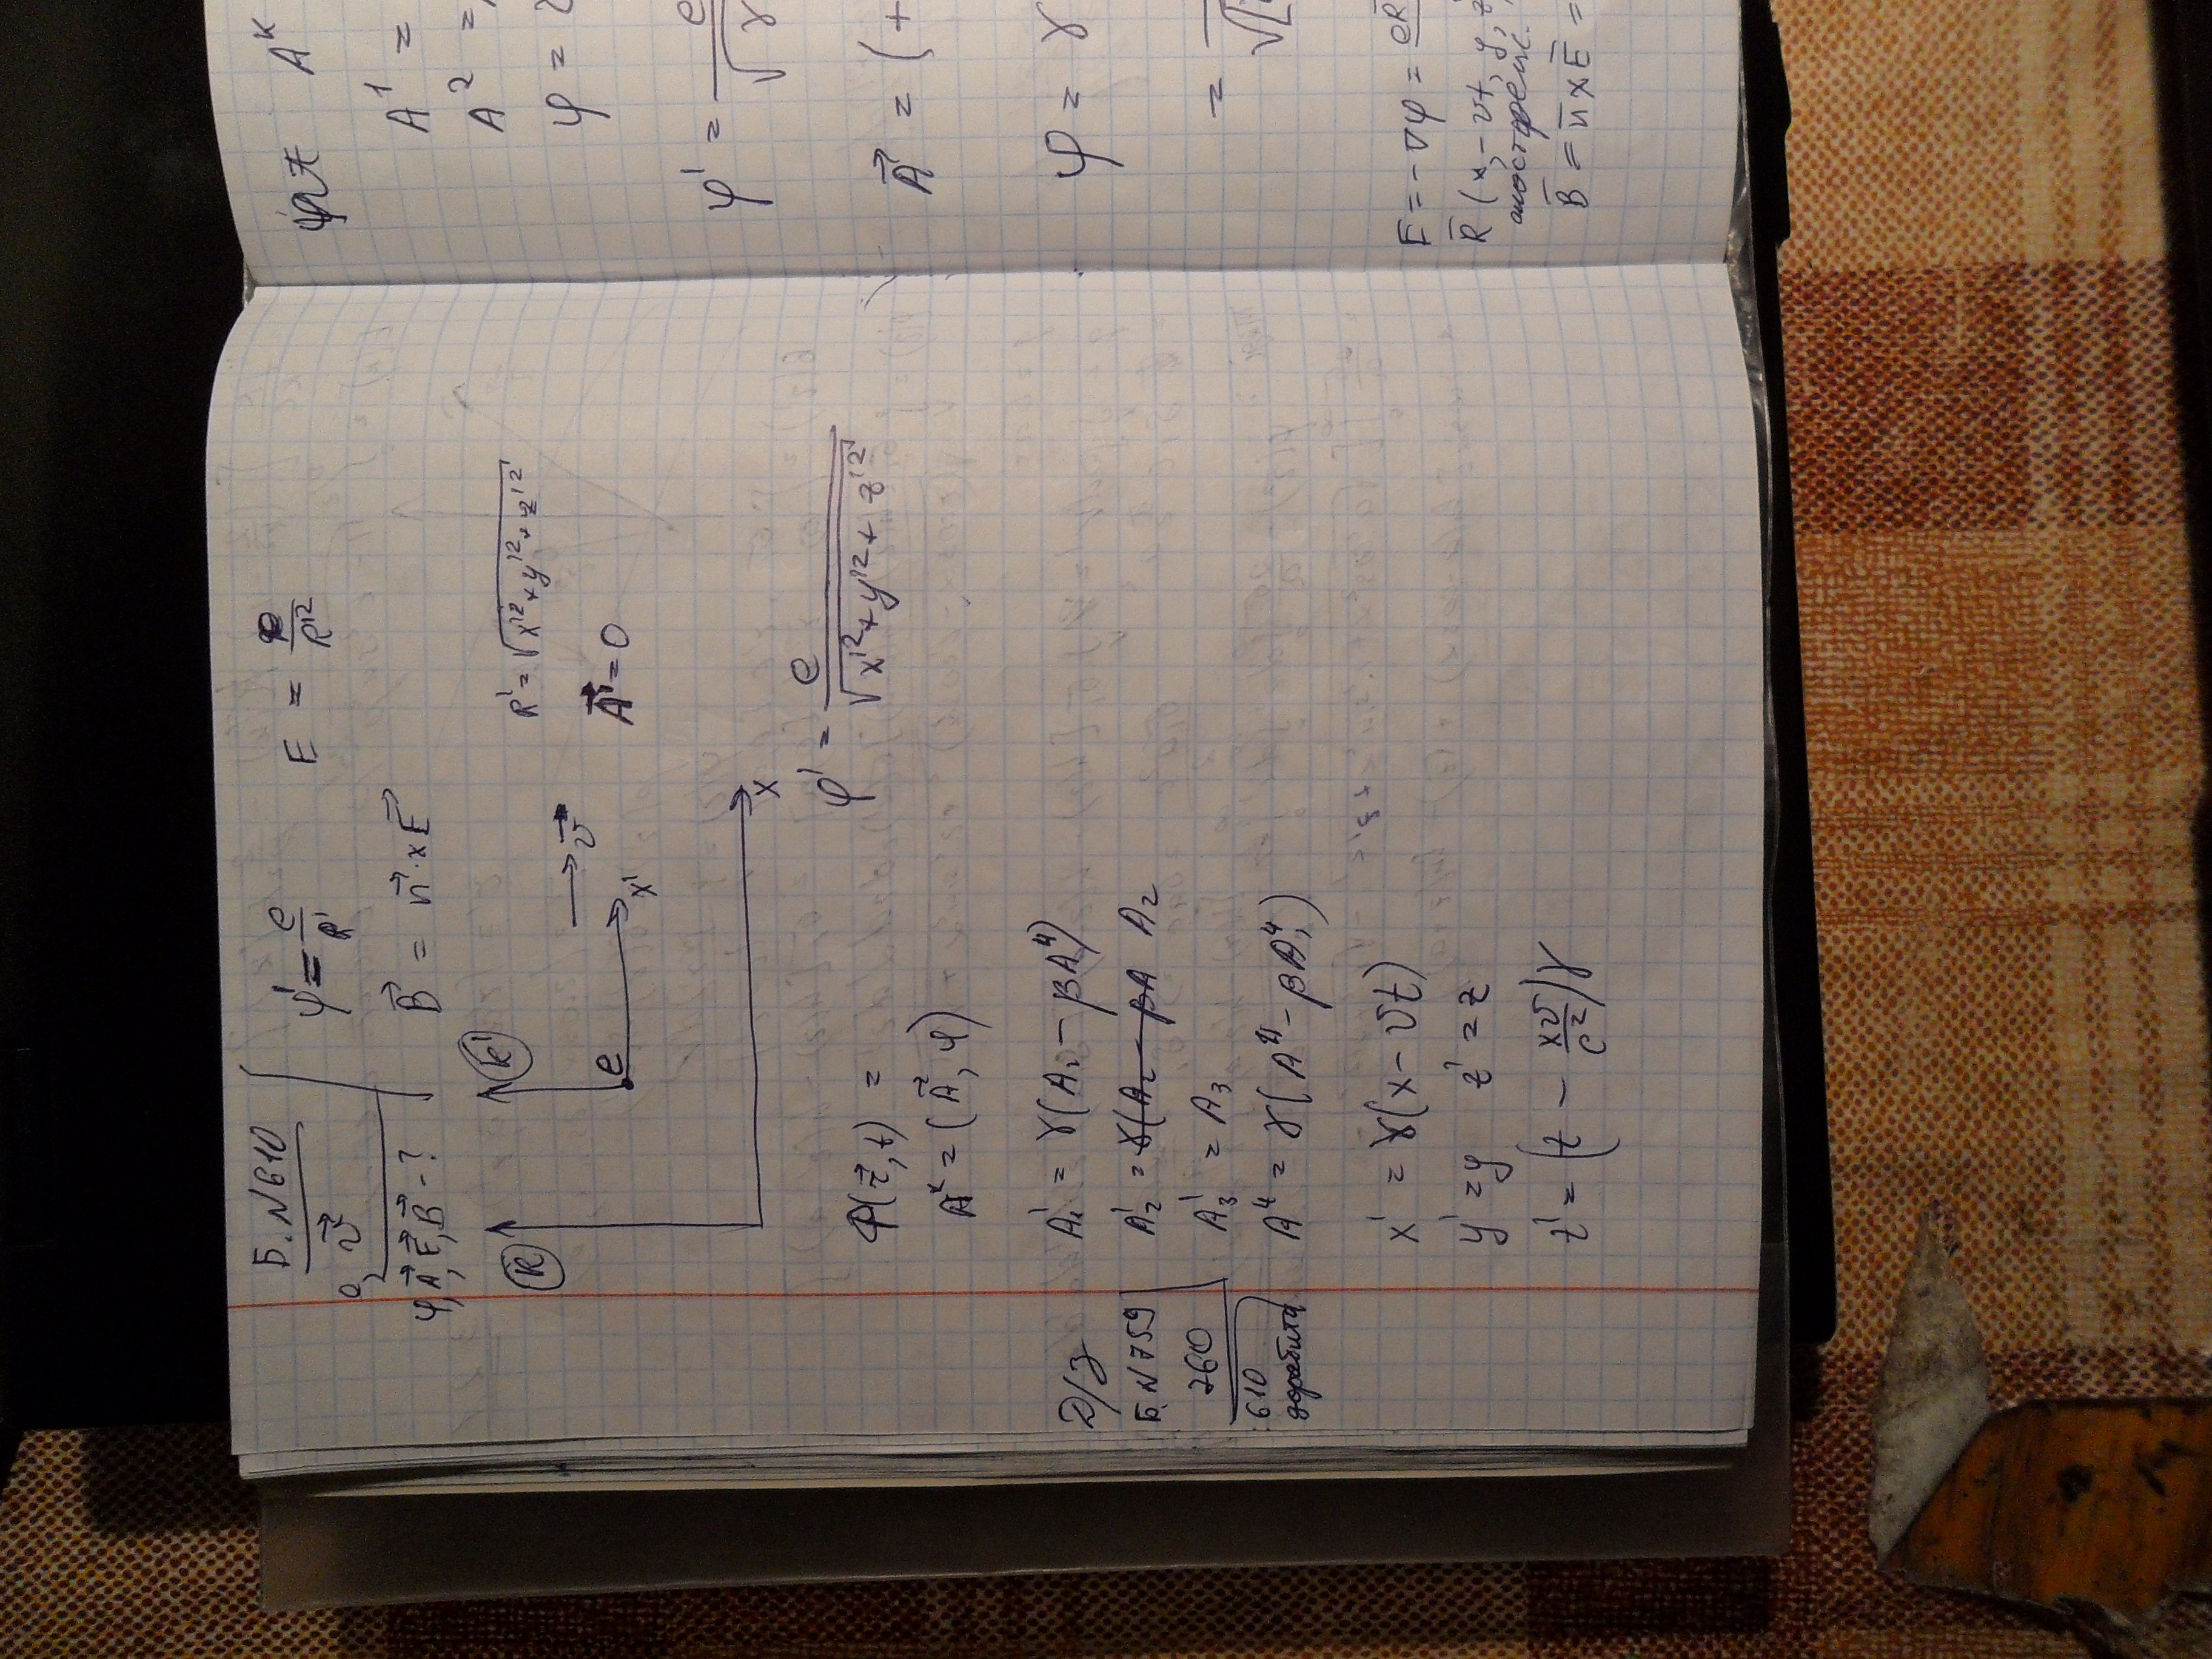 Б. N 610
e, v⃗
φ, A⃗, E⃗, B⃗ - ?
φ' = e/R'
E = e/R'²
B⃗ = n⃗ × E⃗
K
K'
e
x'
v⃗
x
R' = √(x'² + y'² + z'²)
A⃗' = 0
φ' = e/√(x'² + y'² + z'²)
φ(r⃗, t) =
Aᵏ = (A⃗, φ)
A₁' = γ(A₁ - βA⁴)
A₂' = γ(A₂ - βA A₂
A₃' = A₃
A⁴' = γ(A⁴ - βA₁)
x' = γ(x - vt)
y' = y z' = z
t' = (t - xv/c²)γ
Д/з
Б. N 759
760
610
доробити
Aᴷ
A¹ =
A² =
φ =
φ' = e/√γ
A⃗ = ( +
φ = γ
=
√[
E = - ∇φ = eR
R (x - vt, y, z
B = n × E =